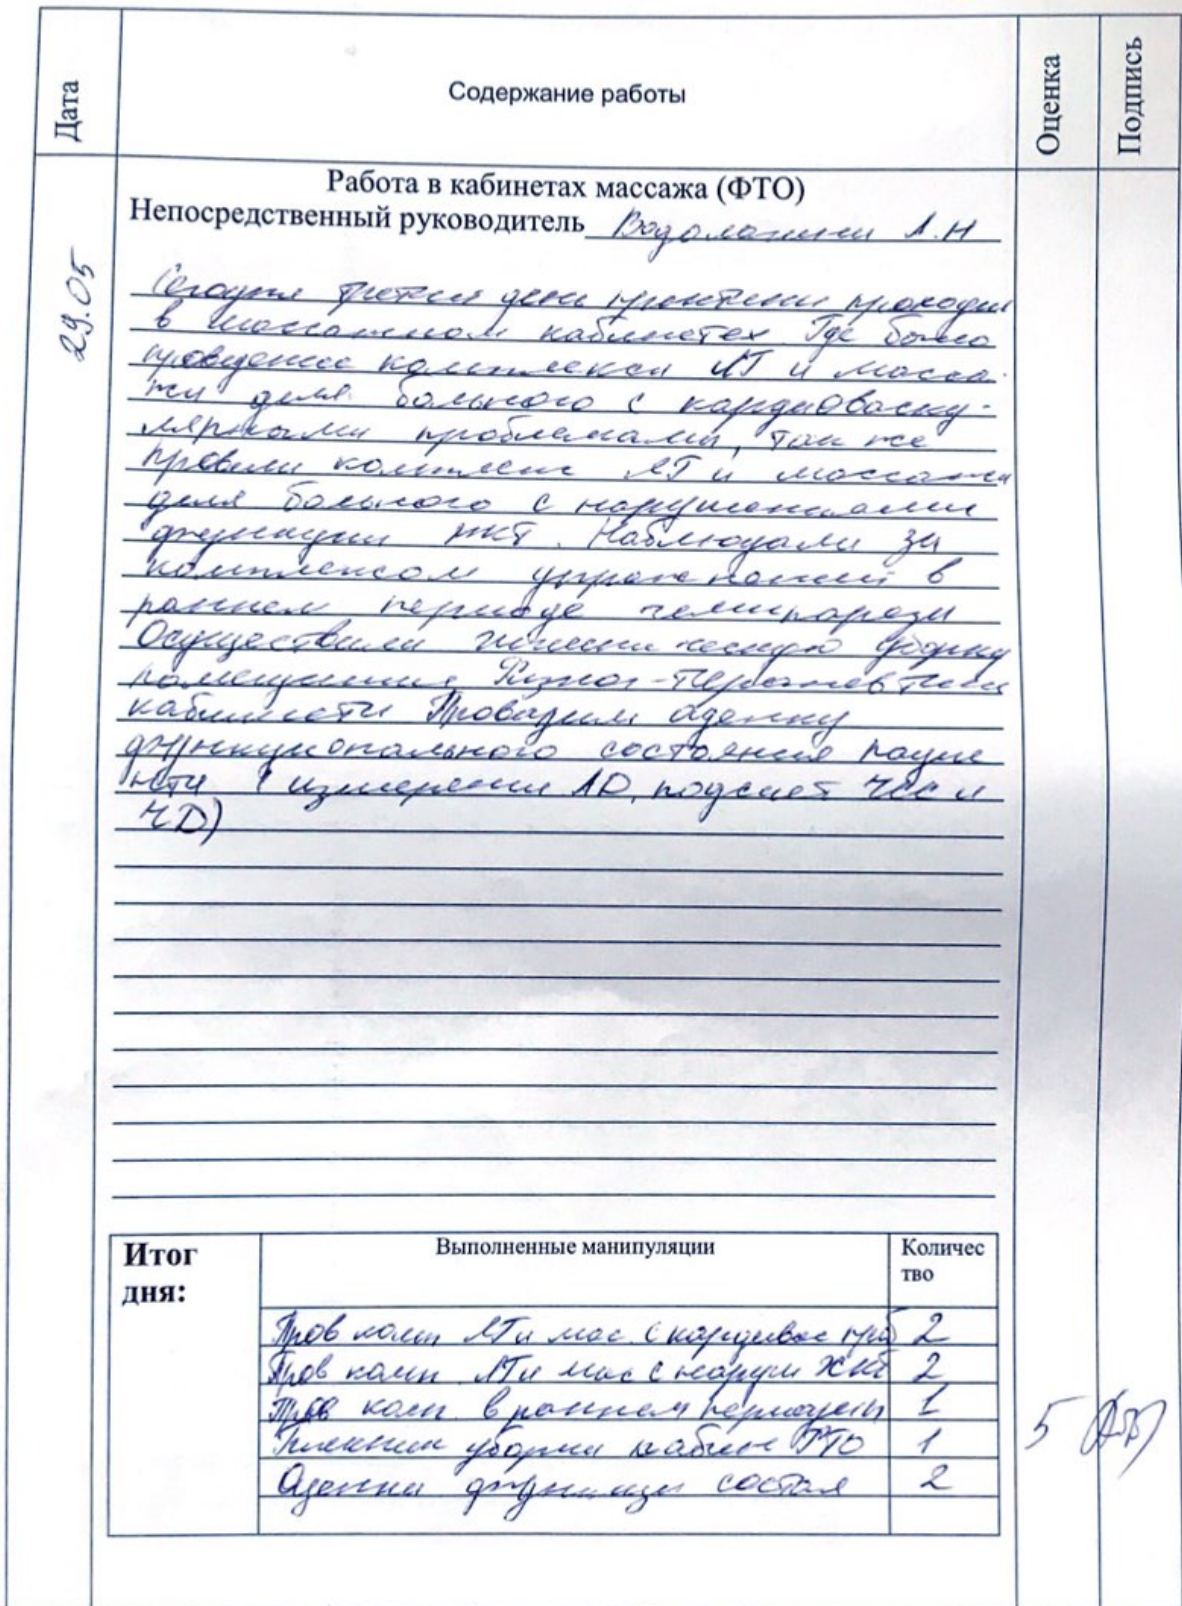 Дата
Содержание работы
Оценка
Подпись
Работа в кабинетах массажа (ФТО)
Непосредственный руководитель А.Н
29.05
Сегодня третий день практики проходил
в массажном кабинетех Где было
проведение комплекса ЛГ и масса-
жи для больного с кардиоваску-
лярными проблемами, так же
провели комплекс ЛГ и массажа
для больного с нарушениями
функции ЖКТ. Наблюдали за
комплексом упражнений в
раннем периоде гемипареза
Осуществили уборку
помещения
кабинета Проводили оценку
функционального состояния пацие
нта (измерении АД, подсчет ЧСС и
ЧД)
Итог дня:
Выполненные манипуляции
Количес
тво
Пров комп ЛГ и мас. с кардиовас проб 2
Пров комп ЛГ и мас с наруш ЖКТ 2
Пров комп. в раннем 1
уборки кабин ФТО 1
Оценки функци состоя 2
5